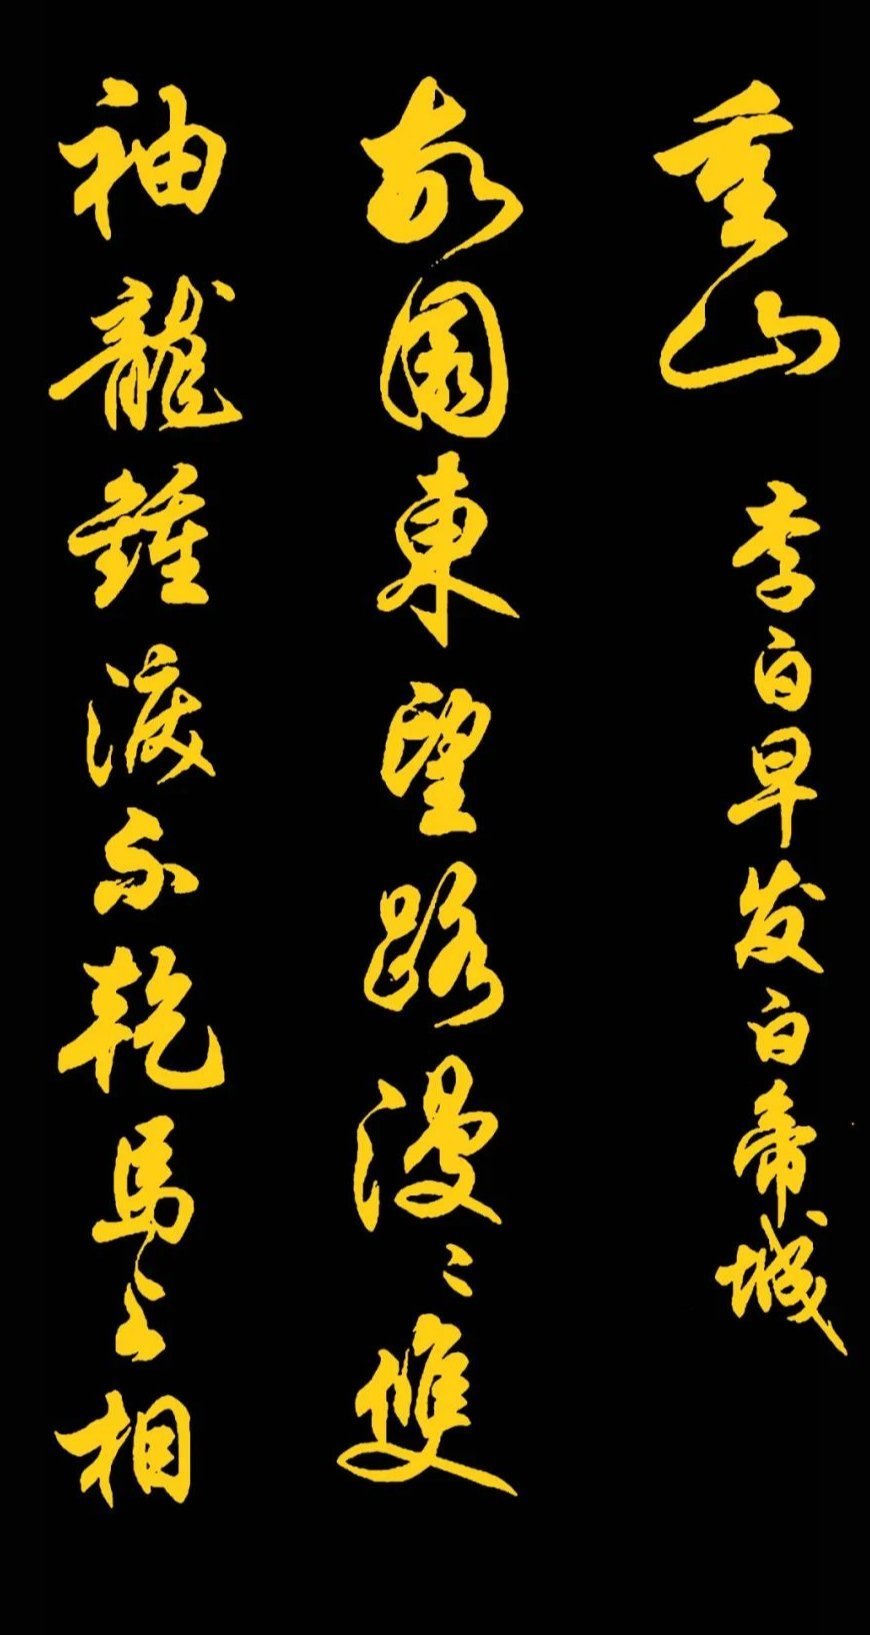 重山 李白早发白帝城
故園東望路漫〻雙
袖龍鍾淚不乾馬上相